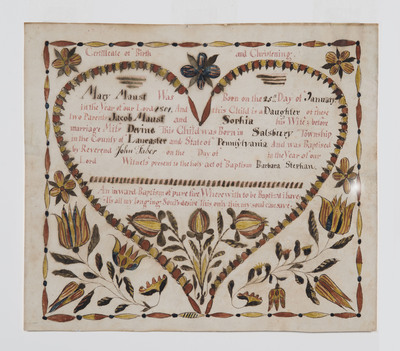 Certificate of Birth and Christening.
Mary Maust Was Born on the 25th Day of January
In the Year of our Lord 1801. And this Child is a Daughter of these
two Parents Jacob Maust and Sophia his Wife's being
marriage Devine This Child was Born in Salsbury Township
in the County of Lancaster and State of Pennsylvania And was Baptised
by Reverend John on the Day of In the Year of our
Lord Witness present is the holy act of Baptism Barbara Stephan.
An inward Baptism of pure fire Wherewith to be Baptised I have
Tis all my longing Souls desire This only this my soul can save